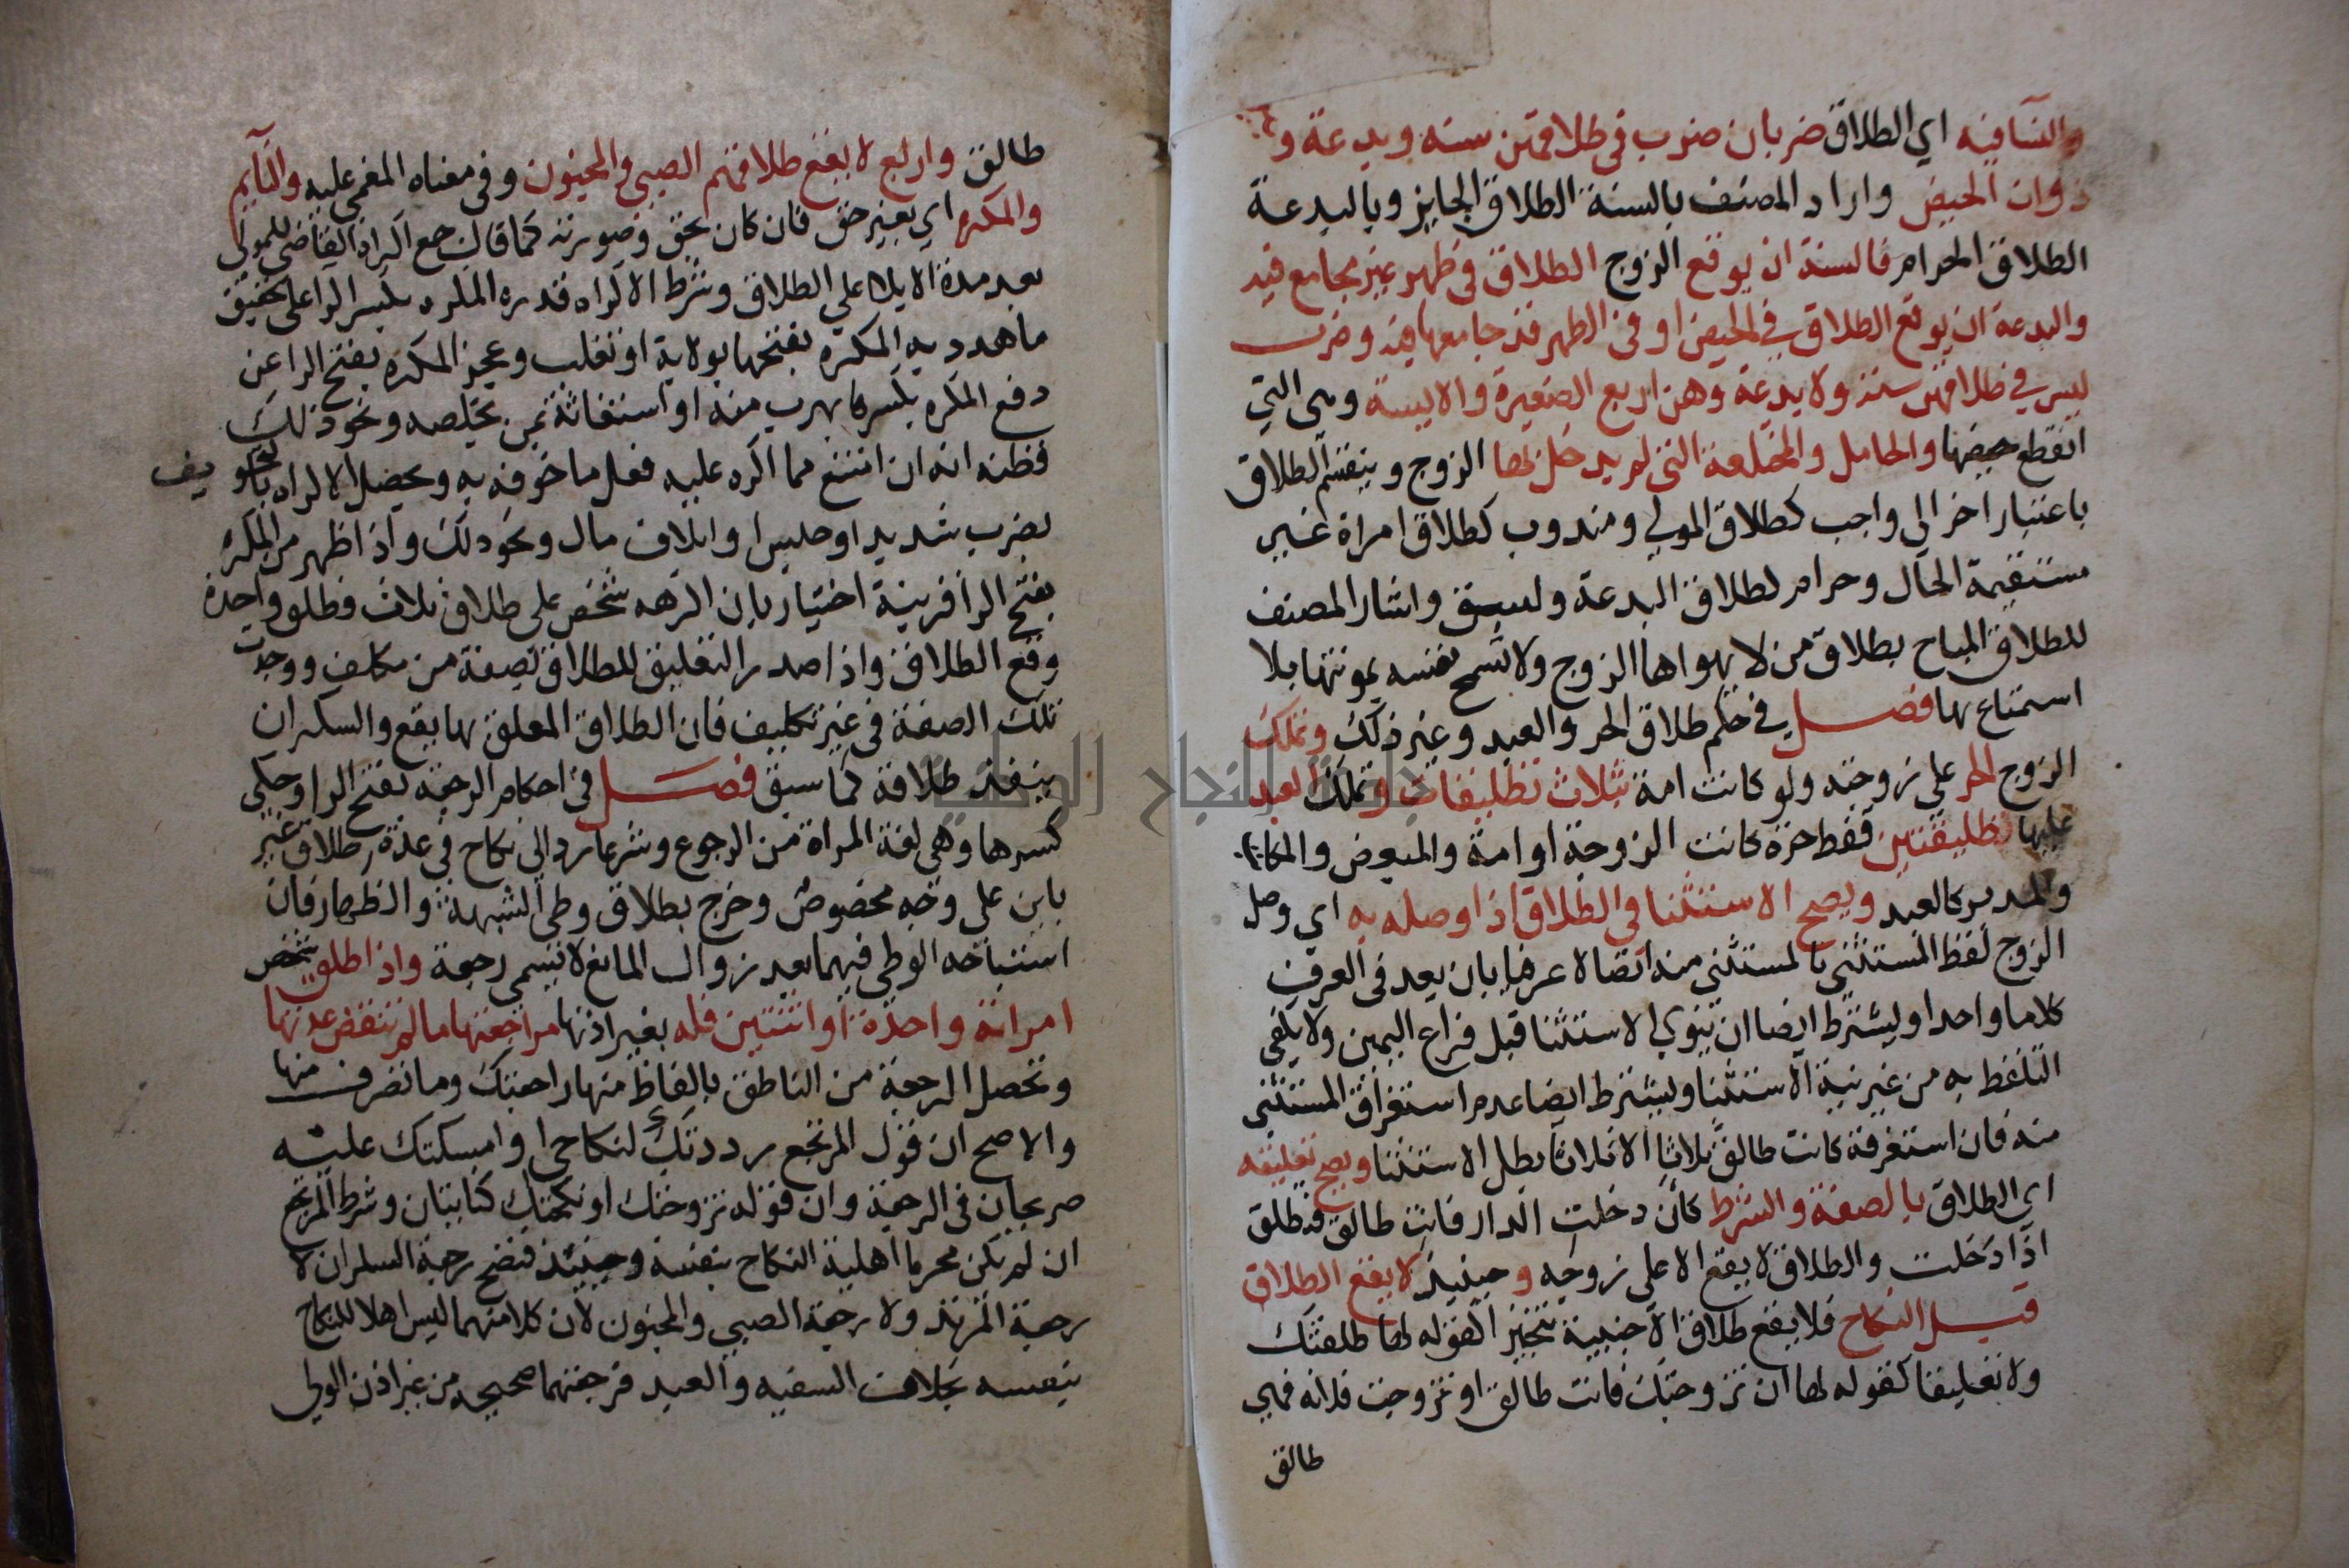 والنسا فيه اي الطلاق ضربان ضرب في طلاقهن سنه وبدعة وهن
ذوات الحيض واراد المصنف بالسنة الطلاق الجايز وبالبدعة
الطلاق الحرام فالسنة ان يوقع الزوج الطلاق في طهر غير مجامع فيه
والبدعة ان يوقع الطلاق في الحيض او في الطهر قد جامعها فيه وضرب
ليس في طلاقهن سنة ولا بدعة وهن اربع الصغيرة والايسة وهي التي
انقطع حيضها والحامل والمختلعة التي لم يدخل بها الزوج وينقسم الطلاق
باعتبار اخر الى واجب كطلاق المولي ومندوب كطلاق امراة غير
مستقيمة الحال وحرام لطلاق البدعة ولسبق واشار المصنف
للطلاق المباح بطلاق من لا يهواها الزوج ولا تسمح نفسه بمونتها بلا
استمتاع بها فصل في حكم طلاق الحر والعبد وغير ذلك وتملك
الزوج الحر علي زوجته ولو كانت امة ثلاث تطليقات وتملك العبد
عليها تطليقتين فقط حرة كانت الزوجة او امة والمبعض والمكاتب
والمدبر كالعبد ويصح الاستثنا في الطلاق اذا وصله به اي وصل
الزوج لفظ المستثني بالمستثني منه اتصالا عرفيا بان يعد في العرف
كلاما واحدا ويشترط ايضا ان ينوي الاستثنا قبل فراع اليمين ولا يكفي
التلفظ به من غير نية الاستثنا ويشترط ايضا عدم استغراق المستثني
منه فان استغرقه كانت طالق ثلاثا الا ثلاثا بطل الاستثنا ويصح تعليقه
اي الطلاق بالصفة والشرط كان دخلت الدار فانت طالق فتطلق
اذا دخلت والطلاق لا يقع الا على زوجه وحينيذ لا يقع الطلاق
قبل النكاح فلا يقع طلاق الاجنبية تنجيزا كقوله لها طلقتك
ولا تعليقا كقوله لها ان تزوجتك فانت طالق او تزوجت فلانه فهي
طالق
طالق واربع لا يقع طلاقهم الصبي والمجنون وفي معناه المغمي عليه والنايم
والمكره اي بغير حق فان كان بحق وصورته كما قال جمع اكراه القاضي للمولي
بعد مدة الايلا علي الطلاق وشرط الاكراه قدره المكره بكسر الرا على تحقيق
ما هدد به المكره بفتحها بولاية او تغلب وعجز المكره بفتح الرا عن
دفع المكره بكسرها بهرب منه او استغاثة بمن يخلصه ونحو ذلك
فظنه انه ان امتنع مما اكره عليه فعل ما خوفه به ويحصل الاكراه بالتخويف
بضرب شديد او حبس او اتلاف مال ونحو ذلك واذا ظهر من المكره
بفتح الرا قرينة اختيار بان اكرهه شخص على طلاق ثلاث فطلق واحدة
وقع الطلاق واذا صدر التعليق للطلاق بصفة من مكلف ووجدت
تلك الصفة في غير تكليف فان الطلاق المعلق بها يقع والسكران
ينفذ طلاقه كما سبق فصل في احكام الرجعة بفتح الرا وحكي
كسرها وهي لغة المراة من الرجوع وشرعا رد الى نكاح في عدة طلاق غير
باين على وجه مخصوص وخرج بطلاق وطي الشبهة والظهار فان
استباحة الوطي فيهما بعد زوال المانع لا تسمي رجعة واذا طلق شخص
امراته واحدة او اثنتين فله بغير اذنها مراجعتها ما لم تنقض عدتها
وتحصل الرجعة من الناطق بالفاظ منها راجعتك وما تصرف منها
والاصح ان قول المرتجع رددتك لنكاحي او امسكتك عليه
صريحان في الرجعة وان قوله تزوجتك او نكحتك كنايتان وشرط المرتجع
ان لم يكن محرما اهلية النكاح بنفسه وحينيذ فتصح رجعة السكران لا
رجعة المرتد ولا رجعة الصبي والمجنون لان كلا منهما ليس اهلا للنكاح
بنفسه بخلاف السفيه والعبد فرجعتهما صحيحه من غير اذن الولي
جامعة النجاح الوطنية